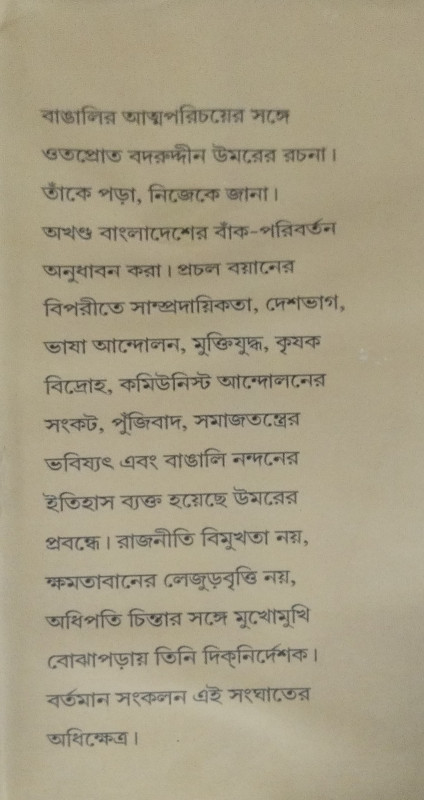 বাঙালির আত্মপরিচয়ের সঙ্গে
ওতপ্রোত বদরুদ্দীন উমরের রচনা।
তাঁকে পড়া, নিজেকে জানা।
অখণ্ড বাংলাদেশের বাঁক-পরিবর্তন
অনুধাবন করা। প্রচল বয়ানের
বিপরীতে সাম্প্রদায়িকতা, দেশভাগ,
ভাষা আন্দোলন, মুক্তিযুদ্ধ, কৃষক
বিদ্রোহ, কমিউনিস্ট আন্দোলনের
সংকট, পুঁজিবাদ, সমাজতন্ত্রের
ভবিষ্যৎ এবং বাঙালি নন্দনের
ইতিহাস ব্যক্ত হয়েছে উমরের
প্রবন্ধে। রাজনীতি বিমুখতা নয়,
ক্ষমতাবানের লেজুড়বৃত্তি নয়,
অধিপতি চিন্তার সঙ্গে মুখোমুখি
বোঝাপড়ায় তিনি দিক্‌নির্দেশক।
বর্তমান সংকলন এই সংঘাতের
অধিক্ষেত্র।